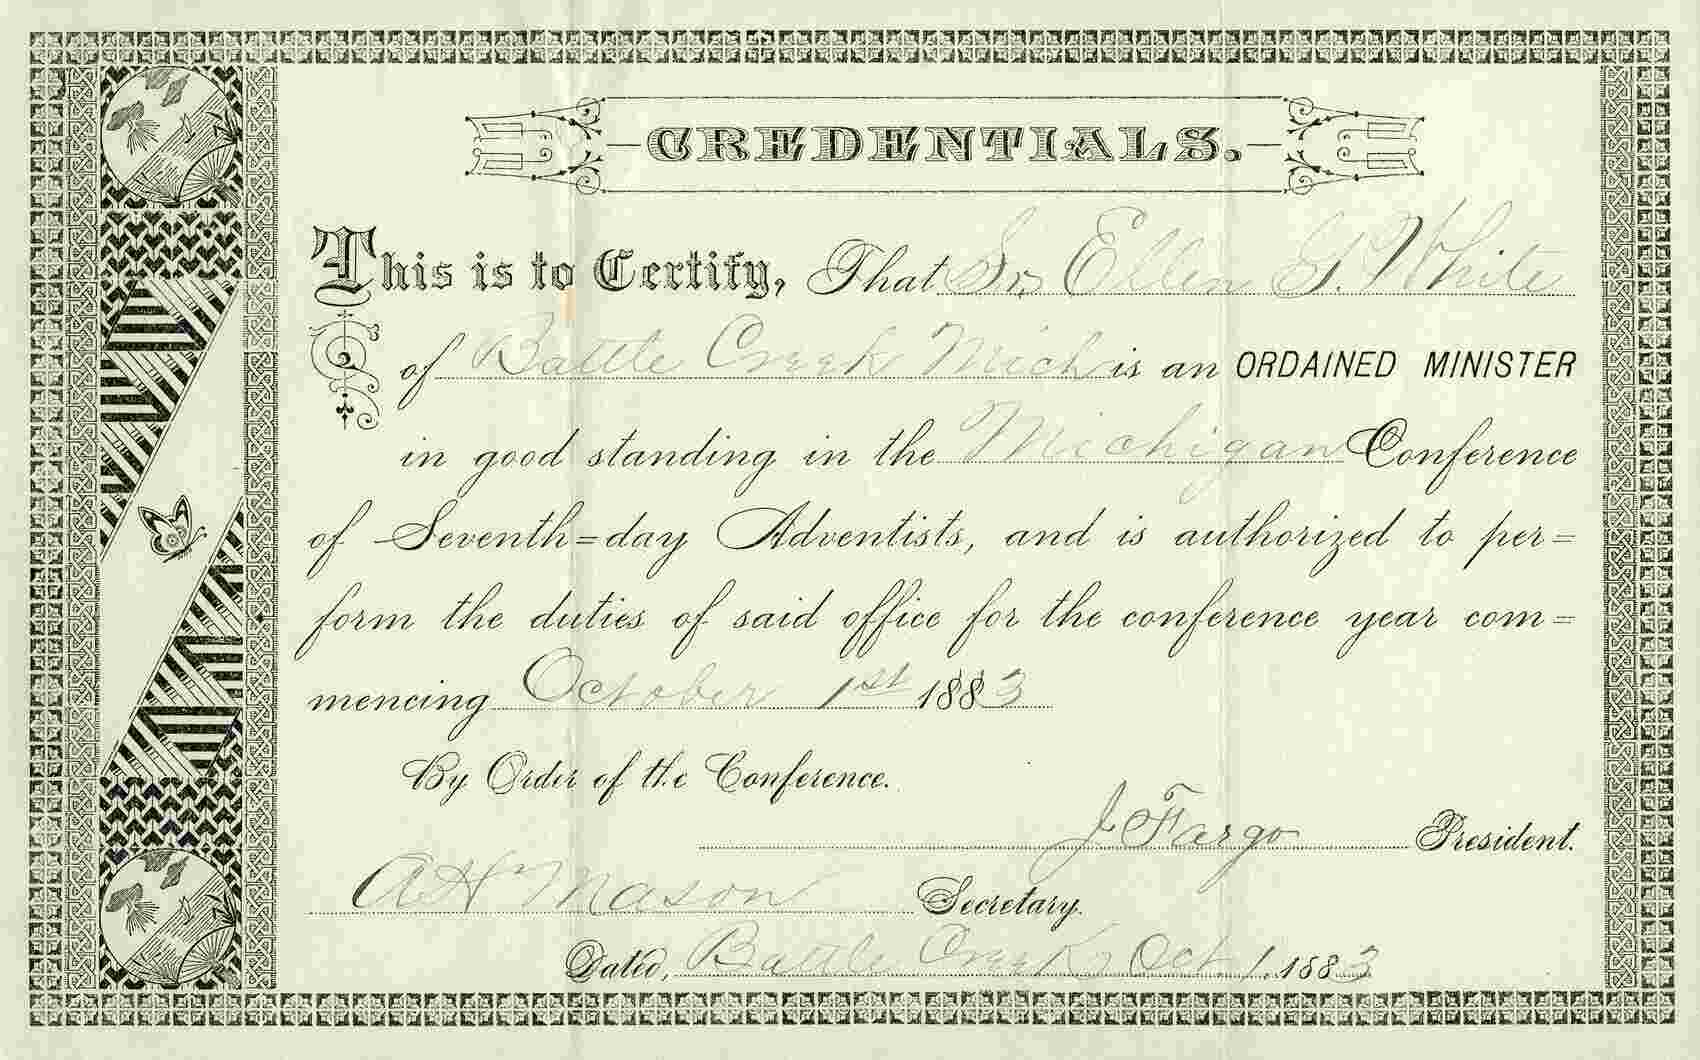 CREDENTIALS.
This is to Certify, That Sr. Ellen G. White
of Battle Creek Mich is an ORDAINED MINISTER
in good standing in the Michigan Conference
of Seventh=day Adventists, and is authorized to per=
form the duties of said office for the conference year com=
mencing October 1st 1883
By Order of the Conference.
J Fargo President.
A H Mason Secretary.
Dated, Battle Creek Oct. 1. 1883